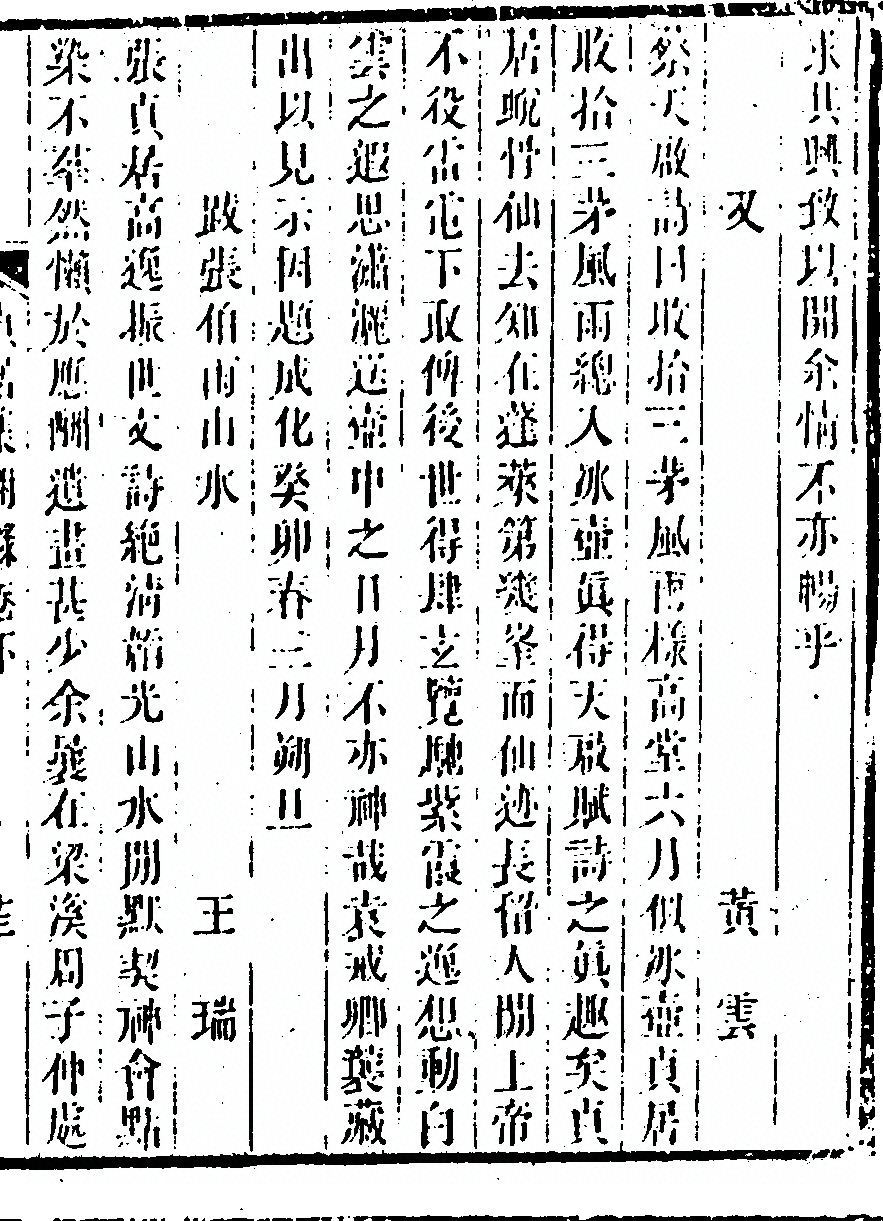 求其興致以開余情不亦暢乎
又 黃雲
蔡天啟詩曰收拾三茅風雨樣高堂六月似冰壺貞居
收拾三茅風雨總入冰壺眞得天啟賦詩之眞趣矣貞
居蛻骨仙去知在蓬萊第幾峯而仙迹長留人間上帝
不役雷電下取俾後世得肆玄覽馳紫霞之遐想動白
雲之遐思瀟灑送壺中之日月不亦神哉袁戒卿襲藏
出以見示因題成化癸卯春三月朔旦
跋張伯雨山水 王瑞
張貞居高逸振世文詩絶淸韻光山水間默契神會點
染不群然懶於應酬遺畫甚少余曩在梁溪周子仲處